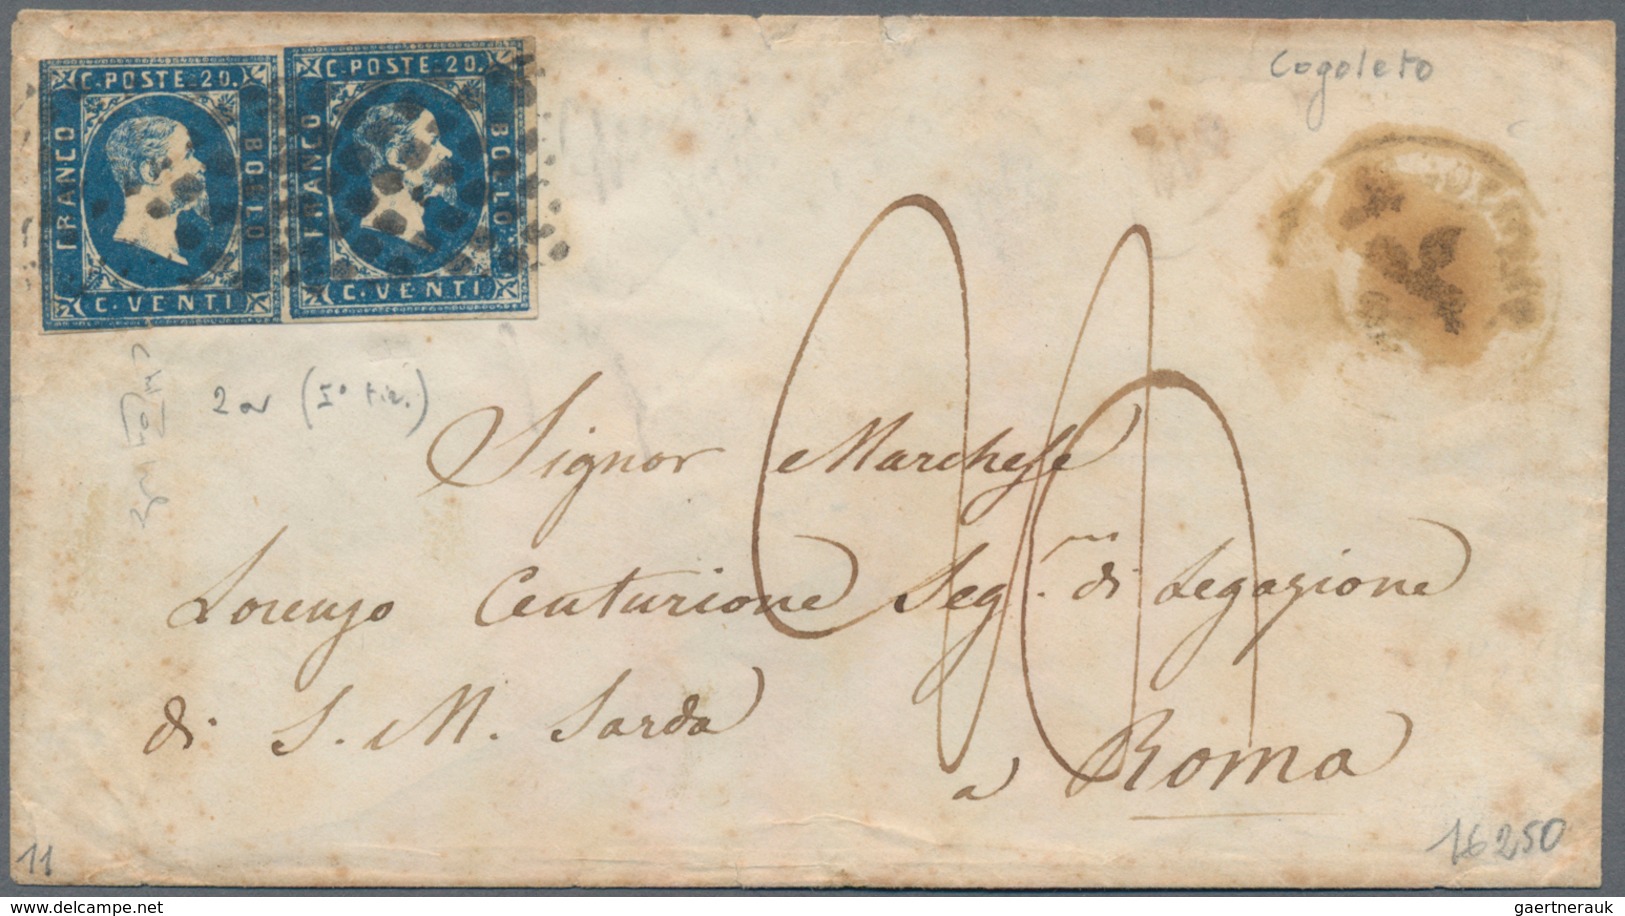 C. POSTE. 20.
FRANCO
BOLLO
C. VENTI
C. POSTE. 20.
FRANCO
BOLLO
C. VENTI
Cogoleto
Signor Marchese
Lorenzo Centurione Seg. di Legazione
di S. M. Sarda
a Roma
11
16250
www.delcampe.net
gaertnerauk